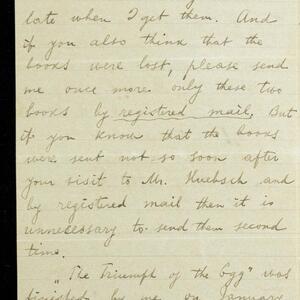 late when I get them. And
if you also think that the
books were lost, please send
me once more only these two
books by registered mail. But
if you know that the books
were sent not so soon after
your visit to Mr. Huebsch and
by registered mail then it is
unnecessary to send them second
time.
„The Triumph of the Egg" was
finished by me on January